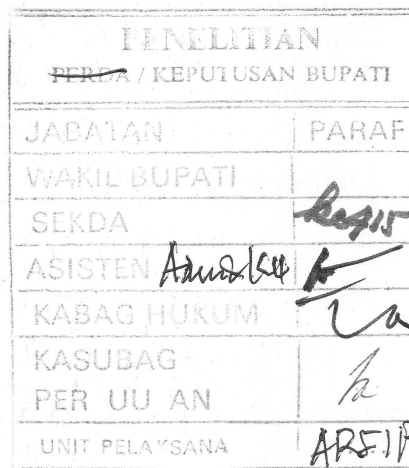 PENELITIAN
PERDA / KEPUTUSAN BUPATI
JABATAN PARAF
WAKIL BUPATI
SEKDA
ASISTEN
KABAG HUKUM
KASUBAG
PER UU AN
UNIT PELAKSANA ARSIP